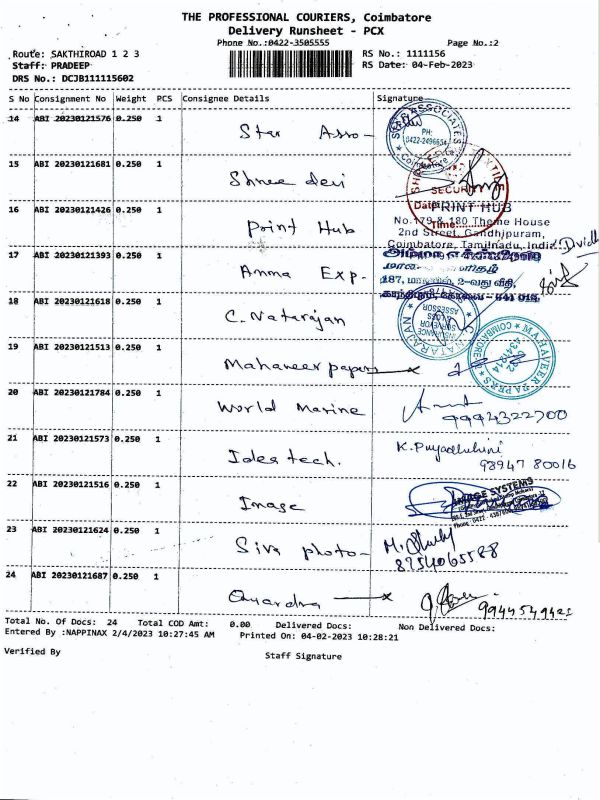 THE PROFESSIONAL COURIERS, Coimbatore
Delivery Runsheet - PCX
Phone No.:0422-3505555 Page No.:2
Route: SAKTHIROAD 1 2 3 RS No.: 1111156
Staff: PRADEEP RS Date: 04-Feb-2023
DRS No.: DCJB111115602
S No Consignment No Weight PCS Consignee Details Signature
14 ABI 20230121576 0.250 1 Star Asso-
PH:
0422-2496654
15 ABI 20230121681 0.250 1 Shree devi
SECURITY
Date
Time:
16 ABI 20230121426 0.250 1 Print Hub
PRINT HUB
No.179 & 180 Theme House
2nd Street, Gandhipuram,
Coimbatore, Tamilnadu, India
17 ABI 20230121393 0.250 1 Amma Exp.
187, 2-வது வீதி,
18 ABI 20230121618 0.250 1 C. Natarajan
INSURANCE
SURVEYOR
& LOSS
ASSESSOR
C. NATARAJAN
19 ABI 20230121513 0.250 1 Mahaveer papers
MAHAVEER PAPERS
COIMBATORE
20 ABI 20230121784 0.250 1 World Marine
9994322700
21 ABI 20230121573 0.250 1 Idea tech.
98947 80016
22 ABI 20230121516 0.250 1 Image
IMAGE SYSTEMS
23 ABI 20230121624 0.250 1 Siva photo-
8754065588
24 ABI 20230121687 0.250 1
Total No. Of Docs: 24 Total COD Amt: 0.00 Delivered Docs: Non Delivered Docs:
Entered By :NAPPINAX 2/4/2023 10:27:45 AM Printed On: 04-02-2023 10:28:21
Verified By Staff Signature